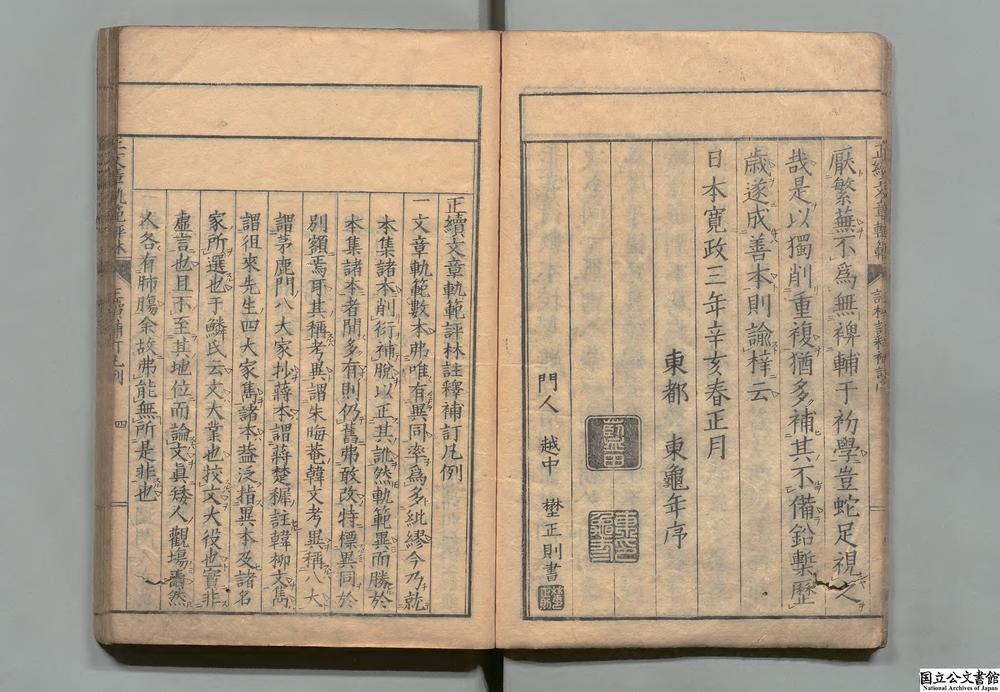 厭繁蕪不爲無裨輔于初學豈蛇足視之
哉是以獨削重複猶多補其不備鉛槧歷
歲遂成善本則諭梓云
日本寬政三年辛亥春正月
東都 東龜年序
門人 越中 埜正則書
正續文章軌範評林註釋補訂凡例
一文章軌範數本弗唯有異同率爲多紕繆今乃就
本集諸本削衍補脫以正其訛然軌範異而勝於
本集諸本者間多有則仍舊弗敢改特標異同於
別額焉耳其稱考異謂朱晦菴韓文考異稱八大
謂茅鹿門八大家抄蔣本謂蔣楚穉註韓柳文雋
謂徂來先生四大家雋諸本益泛指異本及諸名
家所選也于鱗氏云文大業也挍文大役也實非
虛言也且不至其地位而論文眞矮人觀場壽然
人各有肺腸余故弗能無所是非也
四
国立公文書館
National Archives of Japan